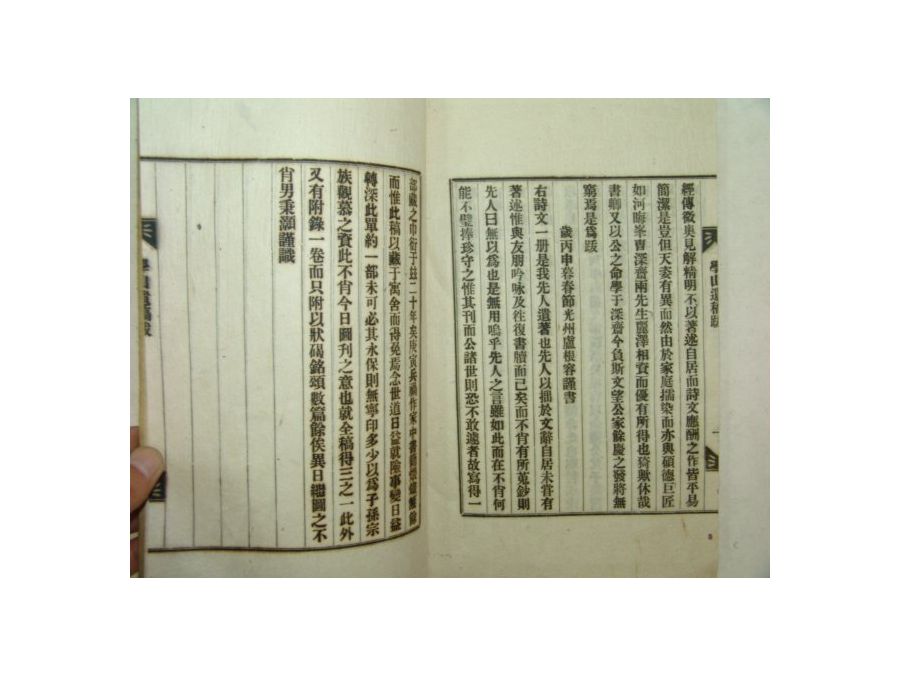 學山遺稿跋
經傳徵奧見解精明不以著述自居而詩文應酬之作皆平易
簡潔是豈但天姿有異而然由於家庭擩染而亦與碩德巨匠
如河晦峯曺深齋兩先生麗澤相資而優有所得也猗歟休哉
書卿又以公之命學于深齋今負斯文望公家餘慶之發將無
窮焉是爲跋
歲丙申暮春節光州盧根容謹書
右詩文一册是我先人遺著也先人以拙於文辭自居未嘗有
著述惟與友朋吟咏及往復書牘而已矣而不肯有所蒐鈔則
先人曰無以爲也是無用嗚乎先人之言雖如此而在不肖何
能不璧捧珍守之惟其刊而公諸世則恐不敢遽者故寫得一
部藏之巾衍于玆二十年矣庚寅兵禍作家中書籍
而惟此稿以藏于寓舍而得免焉念世道日益就險事變日益
轉深此單約一部未可必其永保則無寧印多少以爲子孫宗
族觀慕之資此不肖今日圖刊之意也就全稿得三之一此外
又有附錄一卷而只附以狀碣銘頌數篇餘俟異日繼圖之不
肖男秉灝謹識
學山遺稿跋